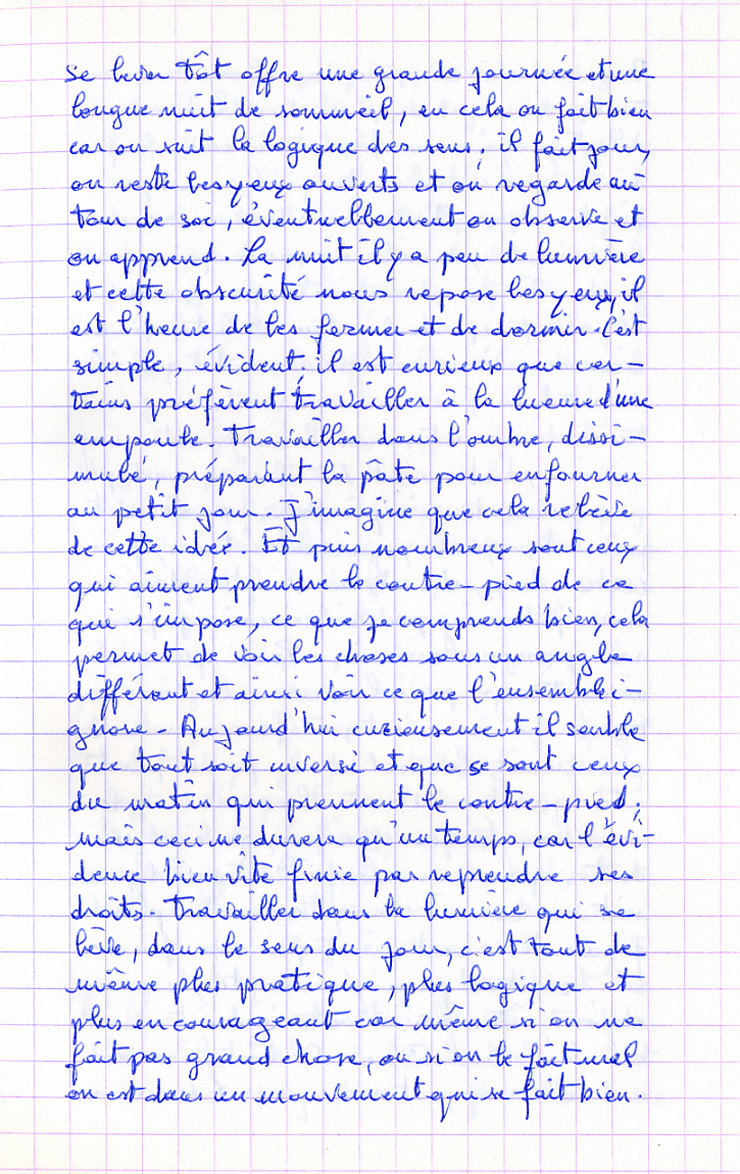 se lever tôt offre une grande journée et une
longue nuit de sommeil, en cela on fait bien
car on suit la logique des sens ; il fait jour,
on reste les yeux ouverts et on regarde au-
tour de soi, éventuellement on observe et
on apprend. La nuit il y a peu de lumière
et cette obscurité nous repose les yeux, il
est l'heure de les fermer et de dormir. C'est
simple, évident ; il est curieux que cer-
tains préfèrent travailler à la lueur d'une
ampoule. Travailler dans l'ombre, dissi-
mulé, préparant la pâte pour enfourner
au petit jour. J'imagine que cela relève
de cette idée. Et puis nombreux sont ceux
qui aiment prendre le contre-pied de ce
qui s'impose, ce que je comprends bien, cela
permet de voir les choses sous un angle
différent et ainsi voir ce que l'ensemble i-
gnore - Aujourd'hui curieusement il semble
que tout soit inversé et que se sont ceux
du matin qui prennent le contre-pied ;
mais ceci ne durera qu'un temps, car l'évi-
dence bien vite finie par reprendre ses
droits. Travailler dans la lumière qui se
lève, dans le sens du jour, c'est tout de
même plus pratique, plus logique et
plus encourageant car même si on ne
fait pas grand chose, ou si on le fait mal
on est dans un mouvement qui se fait bien.